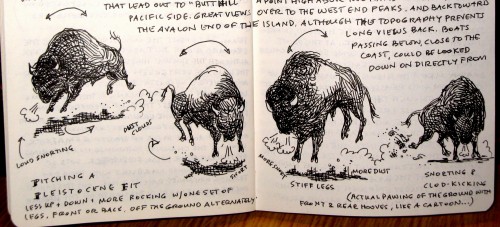 THAT LEAD OUT TO "BUTTHILL A POINT HIGH ABOVE
PACIFIC SIDE. GREAT VIEWS OVER TO THE WEST END PEAKS. AND BACK TOWARD
THE AVALON END OF THE ISLAND. ALTHOUGH THE TOPOGRAPHY PREVENTS
LONG VIEWS BACK. BOATS
PASSING BELOW, CLOSE TO THE
COAST, COULD BE LOOKED
DOWN ON DIRECTLY FROM
DUST
CLOUDS
LOUD SNORTING
SNORT
MORE SNORT
MORE DUST
STIFF LEGS
SNORTING &
CLOD-KICKING
PITCHING A
PLEISTOCENE FIT
LESS UP + DOWN + MORE ROCKING W/ ONE SET OF
LEGS, FRONT OR BACK, OFF THE GROUND ALTERNATELY.
(ACTUAL PAWING OF THE GROUND WITH
FRONT & REAR HOOVES, LIKE A CARTOON...)